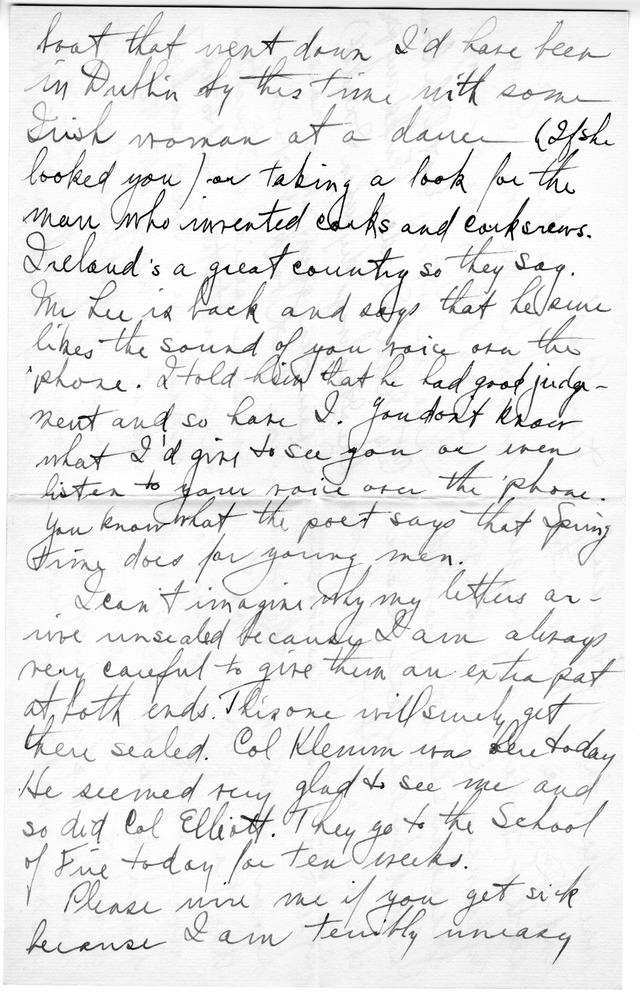 boat that went down I'd have been
in Dublin by this time with some
Irish woman at a dance (If she
looked you) or taking a look for the
man who invented corks and corkscrews.
Ireland's a great country so they say.
Mr Lee is back and says that he sure
likes the sound of you voice over the
'phone. I told him that he had good judge-
ment and so have I. You don't know
what I'd give to see you or even
listen to your voice over the 'phone.
You know what the poet says that Spring
time does for young men.
I can't imagine why my letters ar-
rive unsealed because I am always
very careful to give them an extra pat
at both ends. This one will surely get
there sealed. Col Klemm was here today
He seemed very glad to see me and
so did Col Elliott. They go to the School
of Fire today for ten weeks.
Please wire me if you get sick
because I am terribly uneasy